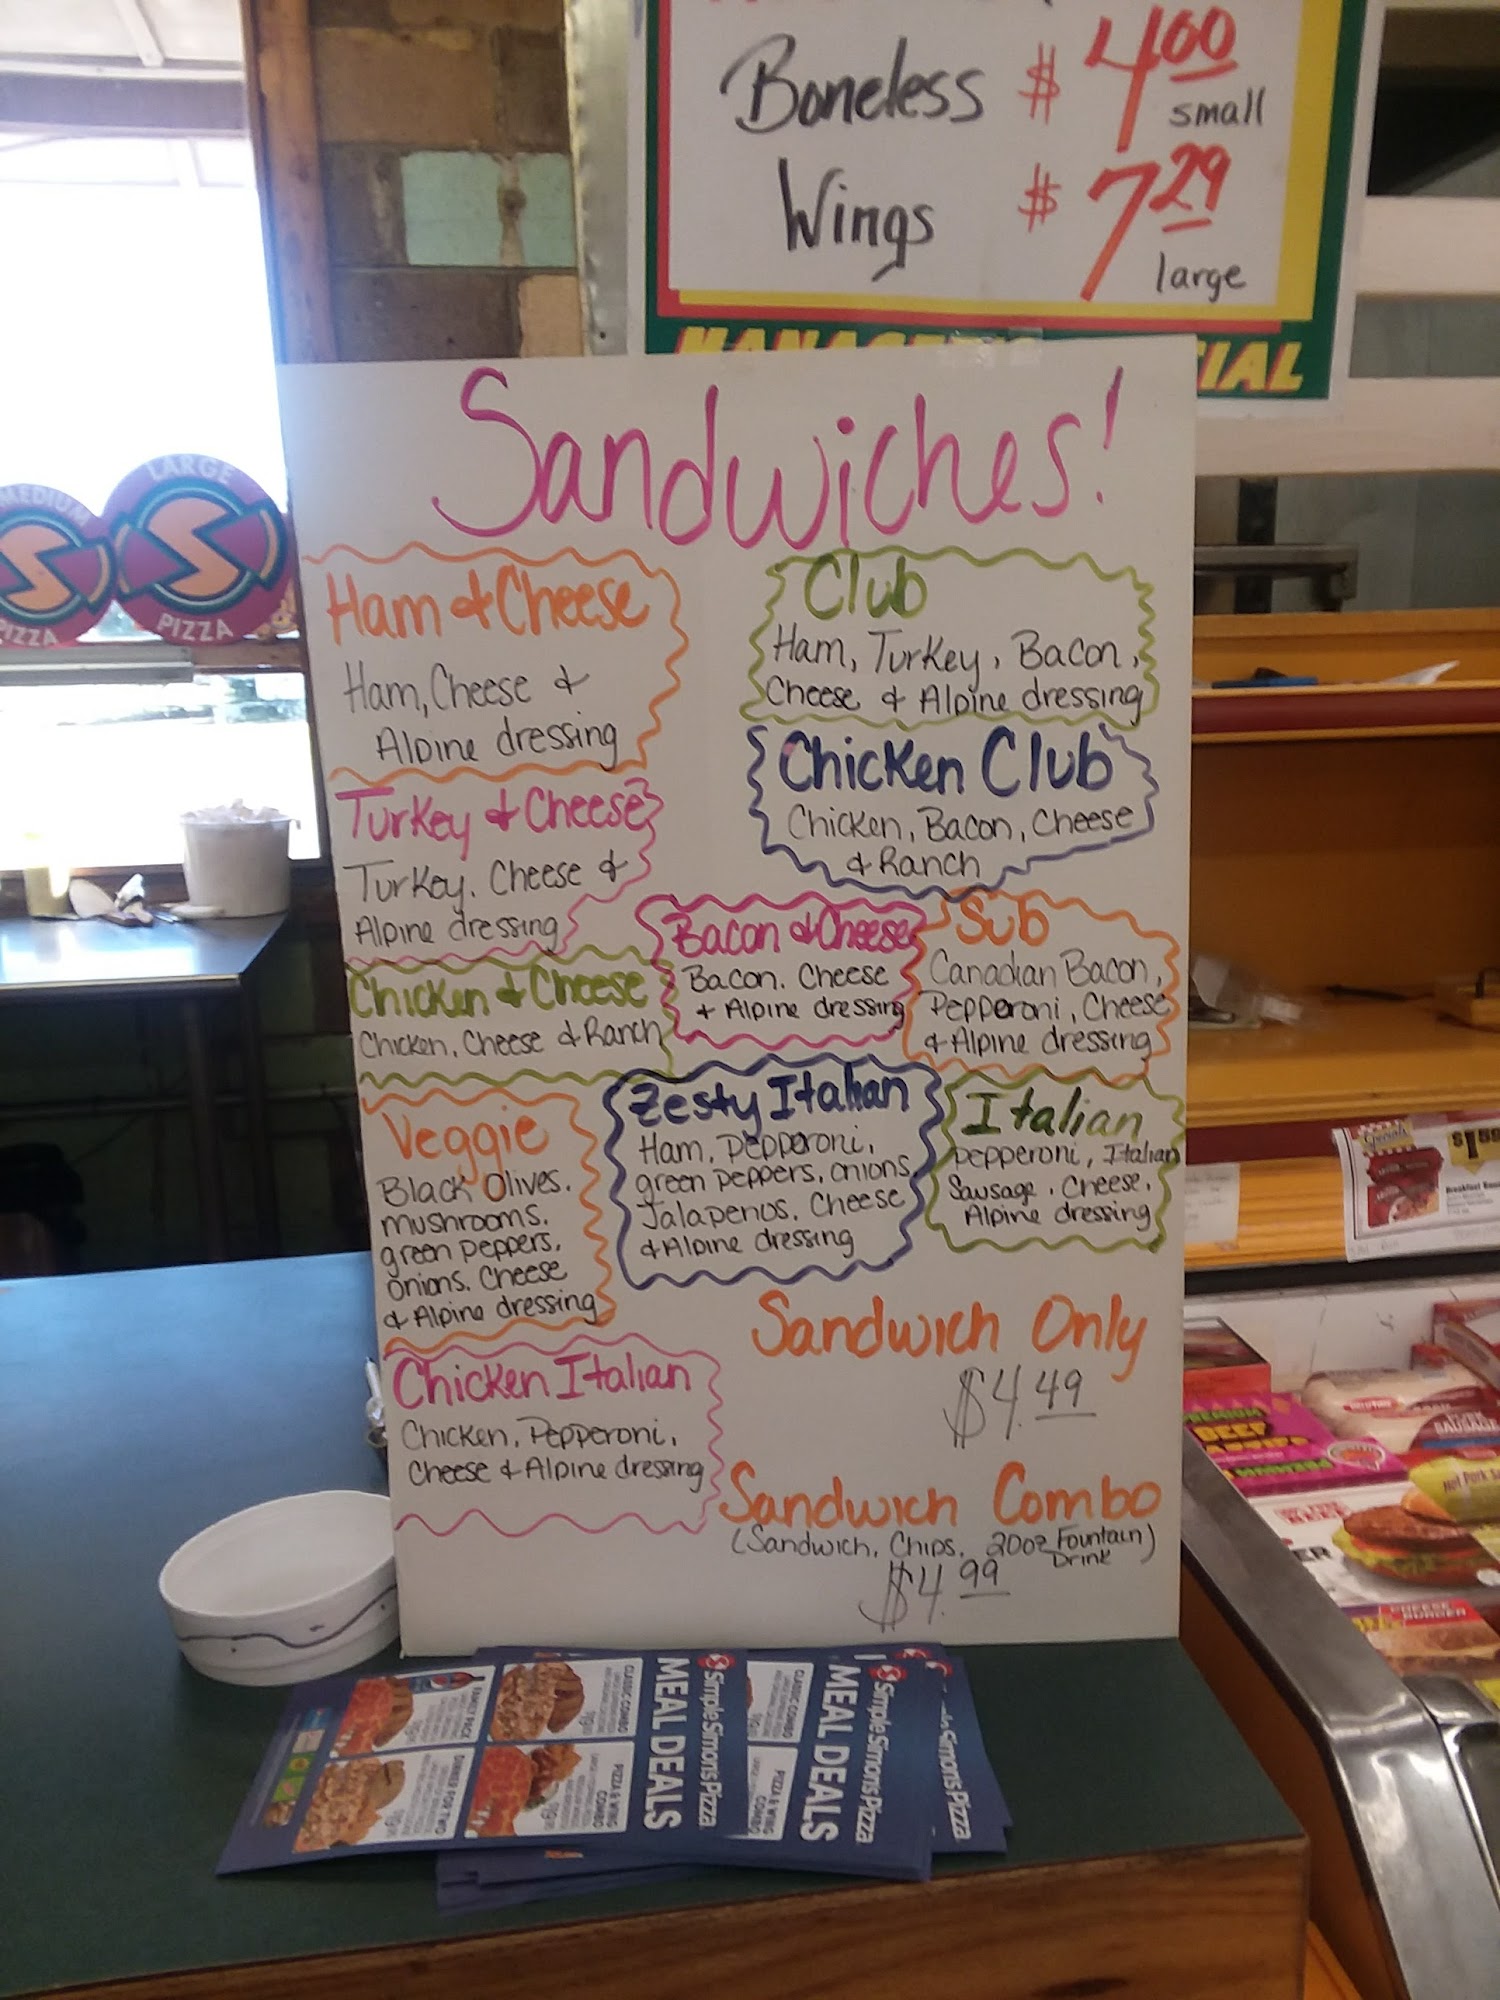 Boneless $4.00
small
Wings $7.29
large
IAL
Sandwiches!
Ham & Cheese
Ham, Cheese &
Alpine dressing
Turkey & Cheese
Turkey, Cheese &
Alpine dressing
Chicken & Cheese
Chicken, Cheese & Ranch
Veggie
Black Olives,
mushrooms,
green peppers,
onions, Cheese
& Alpine dressing
Chicken Italian
Chicken, Pepperoni,
Cheese & Alpine dressing
Club
Ham, Turkey, Bacon,
Cheese & Alpine dressing
Chicken Club
Chicken, Bacon, Cheese
& Ranch
Bacon & Cheese
Bacon, Cheese
& Alpine dressing
Sub
Canadian Bacon,
Pepperoni, Cheese
& Alpine dressing
Zesty Italian
Ham, Pepperoni,
green peppers, onions,
Jalapenos, Cheese
& Alpine dressing
Italian
Pepperoni, Italian
Sausage, Cheese,
Alpine dressing
Sandwich Only
$4.49
Sandwich Combo
(Sandwich, Chips, 20oz Fountain)
Drink
$4.99
MEDIUM
PIZZA
LARGE
PIZZA
Simple Simon's Pizza
MEAL DEALS
CLASSIC COMBO
PIZZA & WING
COMBO
FAMILY PACK
DINNER FOR TWO
Simple Simon's Pizza
MEAL DEALS
CLASSIC COMBO
PIZZA & WING
COMBO
Simon's Pizza
Specials
$1.59
BEEF
SAUSAGE
CHEESE
BURGER